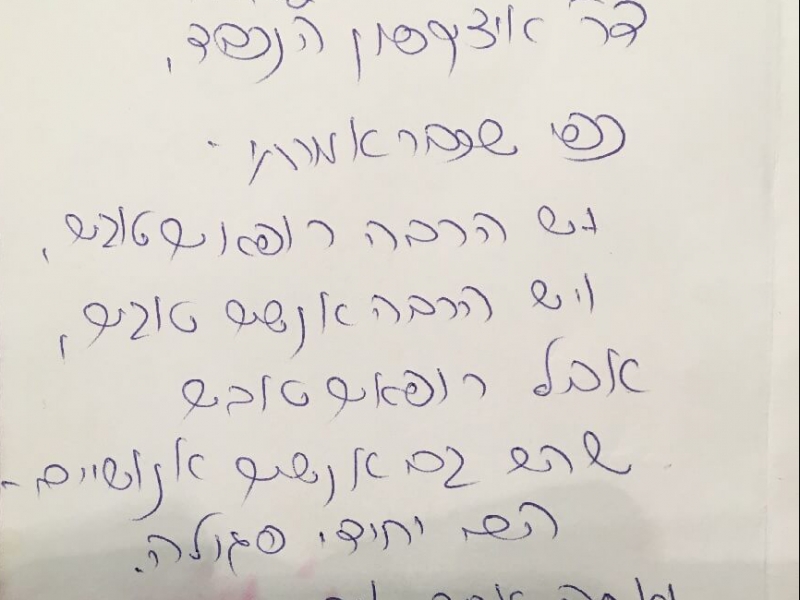 דר' איציקסון הנכבד,
כפי שכבר אמרתי -
יש הרבה רופאים טובים,
ויש הרבה אנשים טובים,
אבל רופאים טובים
שהם גם אנשים אנושיים -
הם יחידי סגולה.